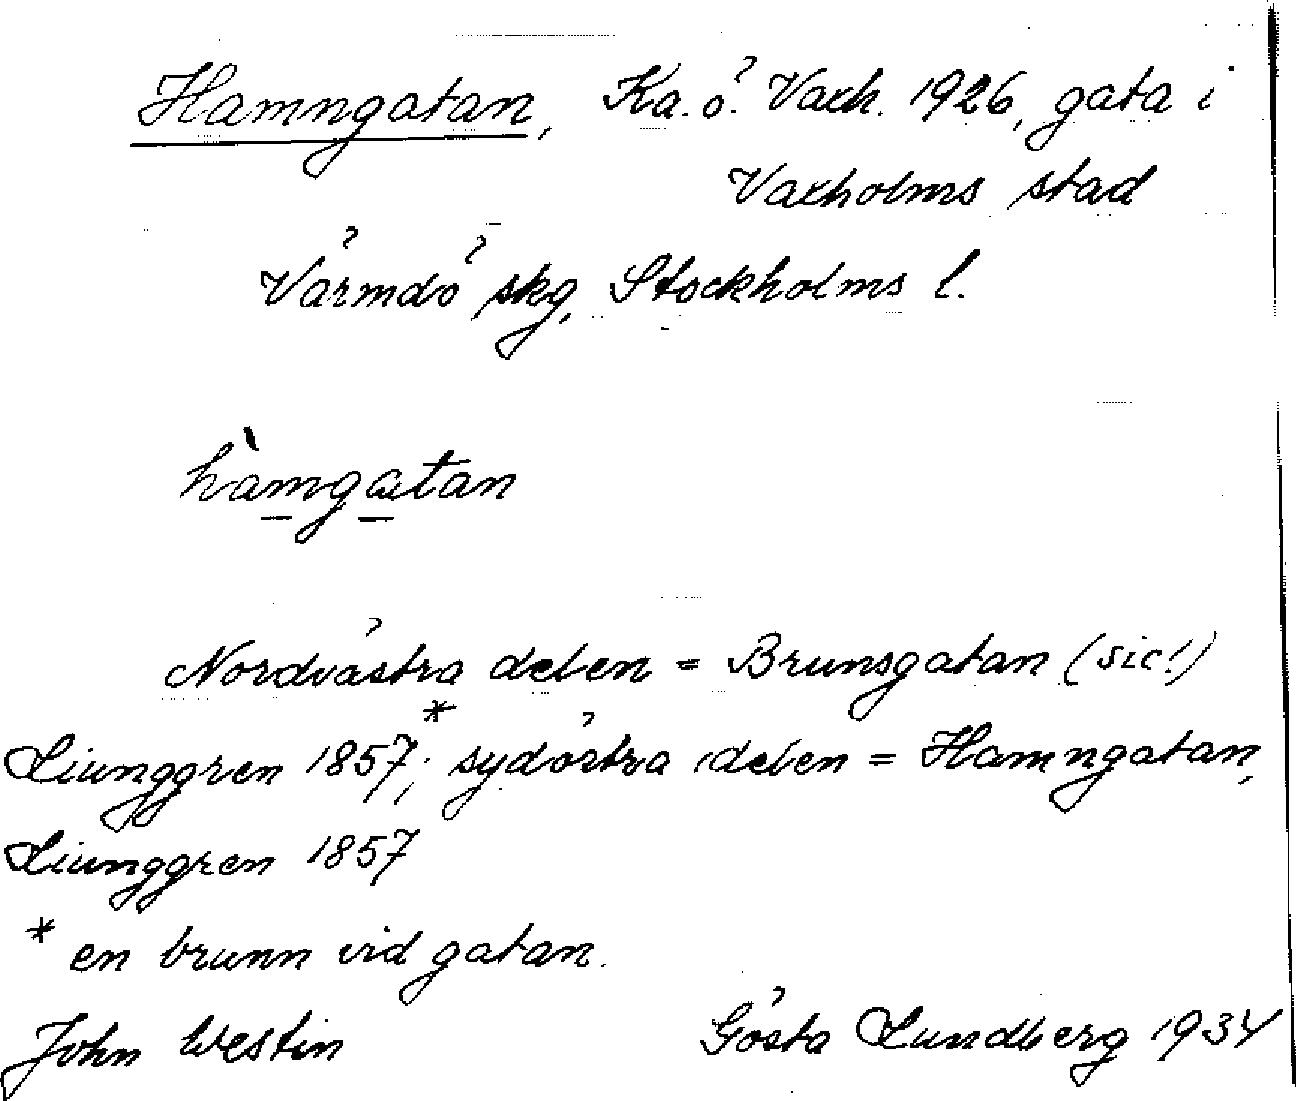 Hamngatan, Ka. ö. Vaxh. 1926, gata i
Vaxholms stad
Värmdö skg, Stockholms l.
hàmgatan
Nordvästra delen = Brunsgatan (sic!)
Liunggren 1857*; sydöstra delen = Hamngatan,
Liunggren 1857
* en brunn vid gatan.
John Westin Gösta Lundberg 1934